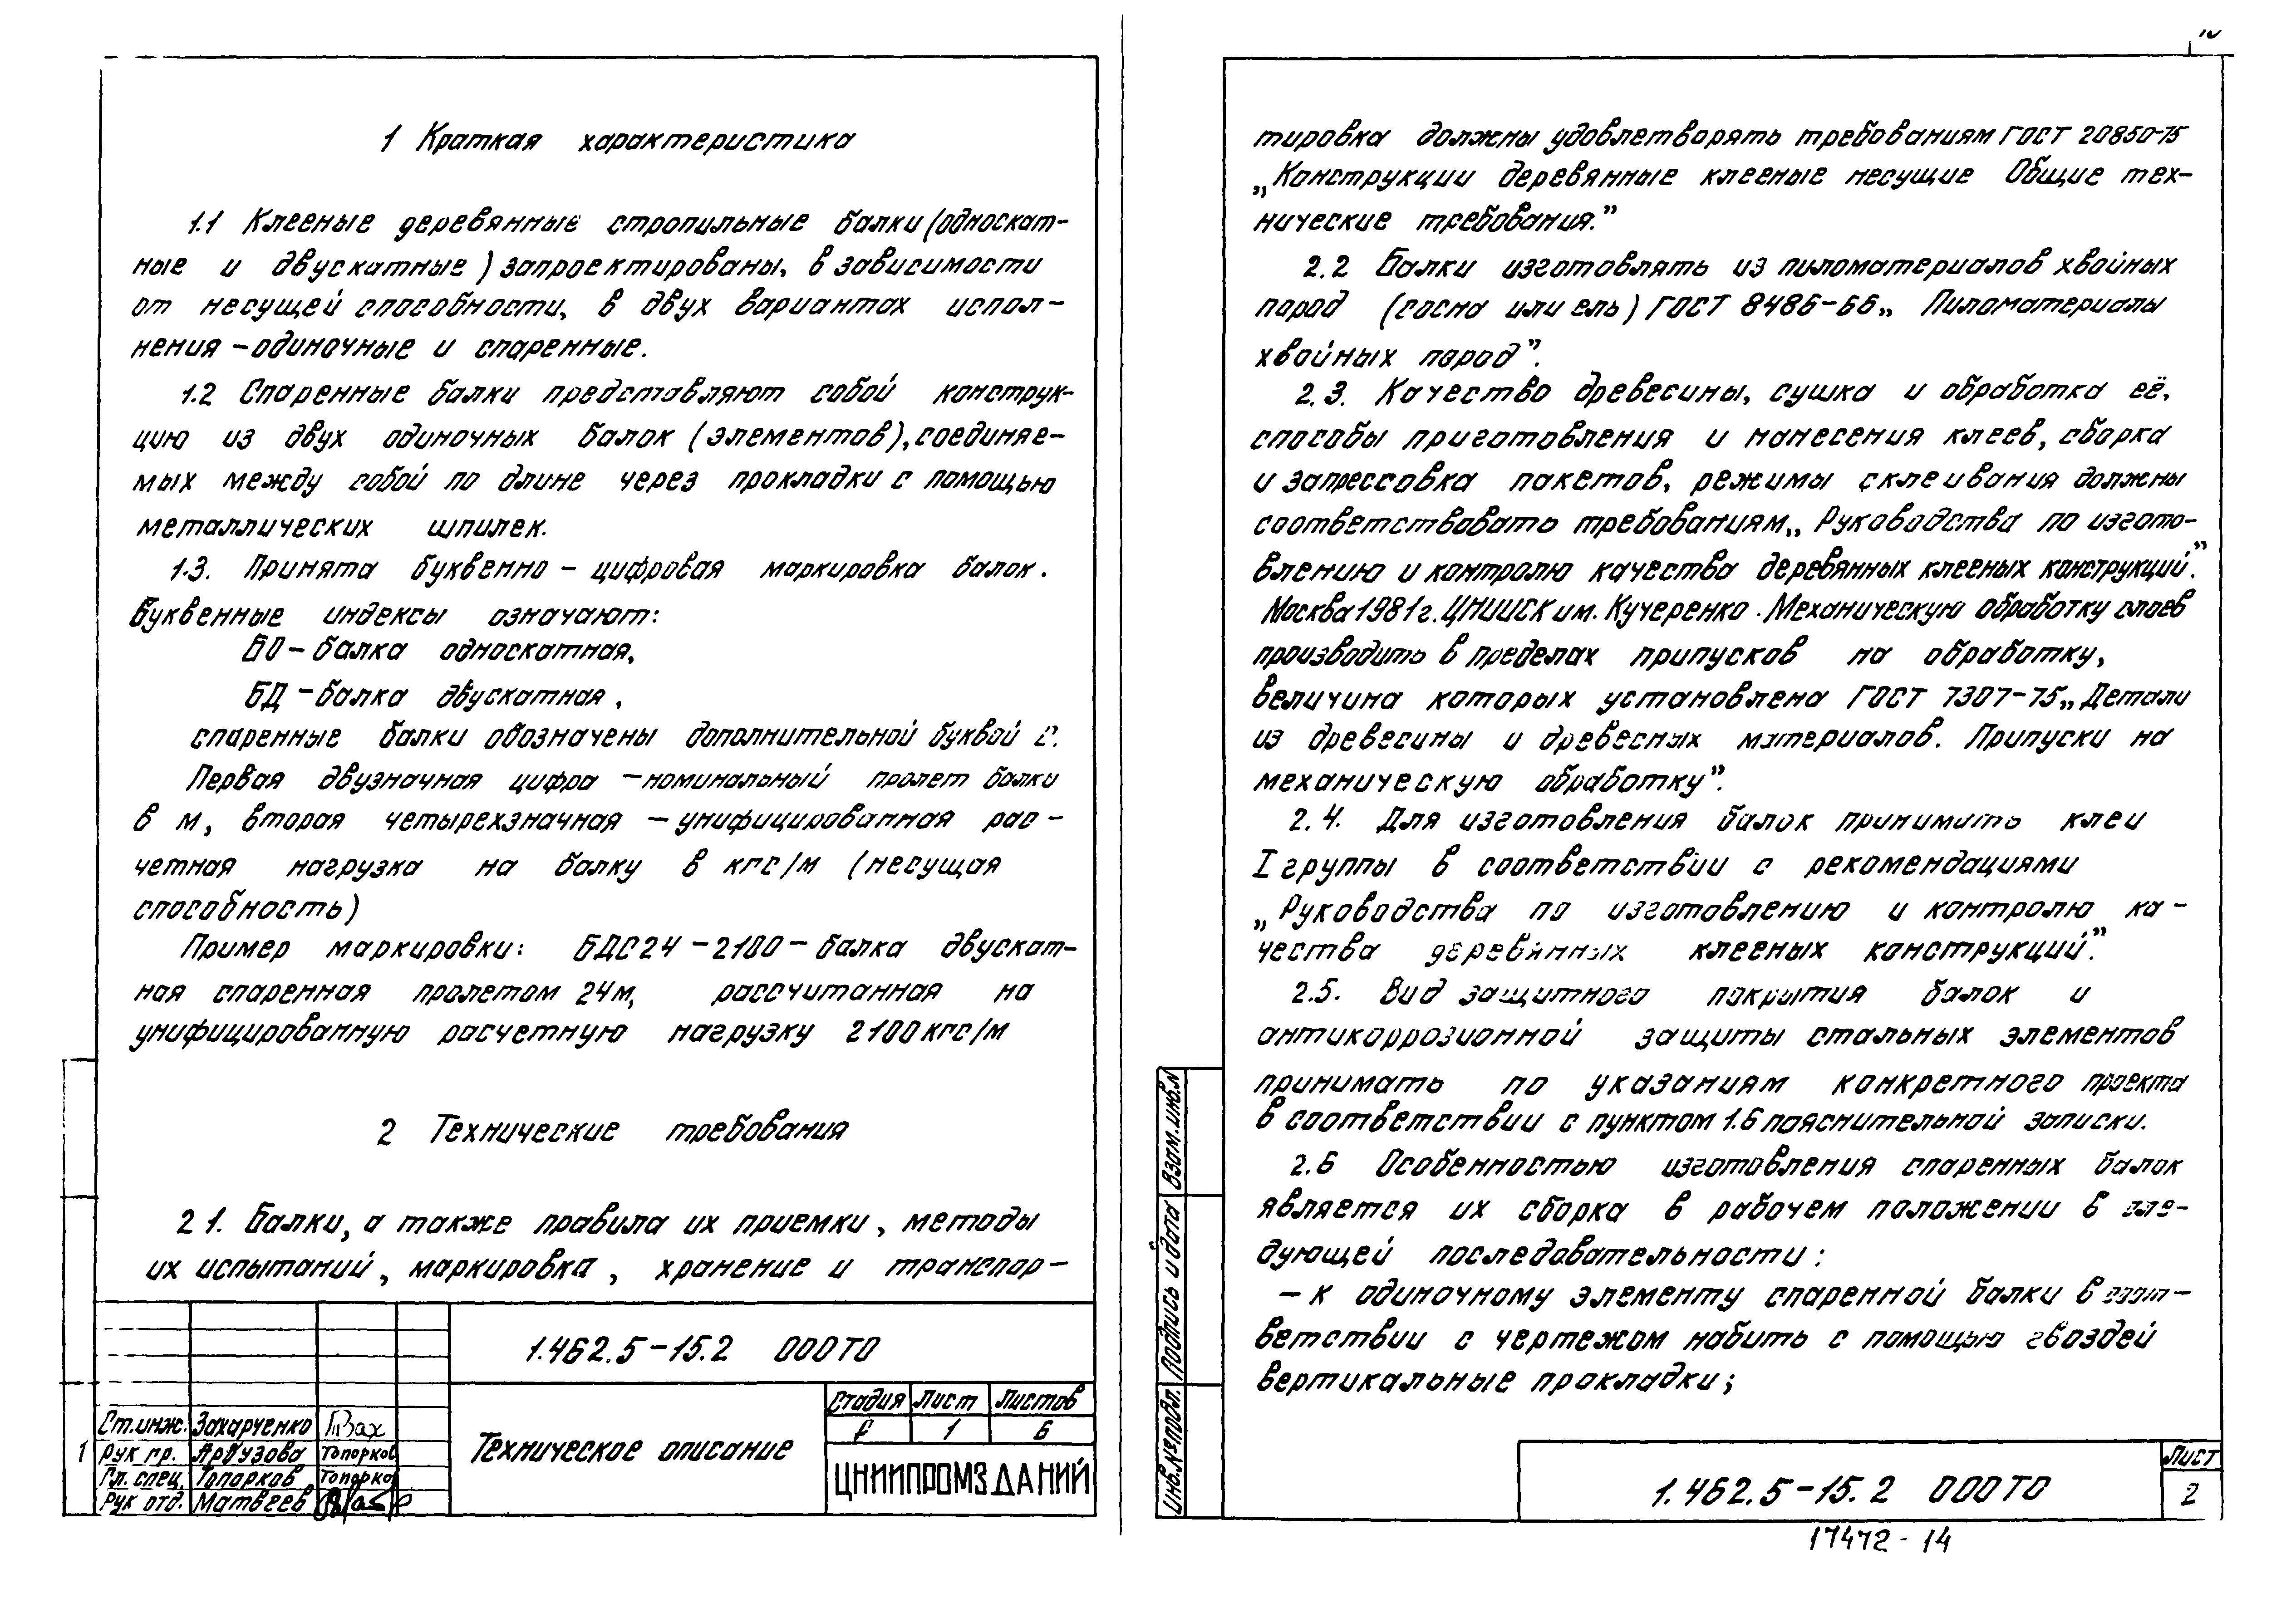 1 Краткая характеристика
1.1 Клееные деревянные стропильные балки (односкат-
ные и двускатные) запроектированы, в зависимости
от несущей способности, в двух вариантах испол-
нения – одиночные и спаренные.
1.2 Спаренные балки представляют собой конструк-
цию из двух одиночных балок (элементов), соединяе-
мых между собой по длине через прокладки с помощью
металлических шпилек.
1.3. Принята буквенно – цифровая маркировка балок.
Буквенные индексы означают:
БО – балка односкатная,
БД – балка двускатная,
спаренные балки обозначены дополнительной буквой С.
Первая двузначная цифра – номинальный пролет балки
в м, вторая четырехзначная – унифицированная рас-
четная нагрузка на балку в кгс/м (несущая
способность)
Пример маркировки: БДС24 – 2100 – балка двускат-
ная спаренная пролетом 24м, рассчитанная на
унифицированную расчетную нагрузку 2100 кгс/м
2 Технические требования
2 1. Балки, а также правила их приемки, методы
их испытаний, маркировка, хранение и транспор-
1.462.5-15.2 000ТО
Стадия Лист Листов
Р 1 6
Техническое описание
ЦНИИПРОМЗДАНИЙ
Ст.инж. Захарченко
1 Рук гр. Арбузова Топорков
Гл. спец. Топорков Топорков
Рук отд. Матвеев
тировка должны удовлетворять требованиям ГОСТ 20850-75
„Конструкции деревянные клееные несущие Общие тех-
нические требования."
2.2 Балки изготовлять из пиломатериалов хвойных
пород (сосна или ель) ГОСТ 8486-66 „Пиломатериалы
хвойных пород".
2.3. Качество древесины, сушка и обработка её,
способы приготовления и нанесения клеев, сборка
и запрессовка пакетов, режимы склеивания должны
соответствовать требованиям „Руководства по изгото-
влению и контролю качества деревянных клееных конструкций."
Москва 1981г. ЦНИИСК им. Кучеренко. Механическую обработку слоев
производить в пределах припусков на обработку,
величина которых установлена ГОСТ 7307-75 „Детали
из древесины и древесных материалов. Припуски на
механическую обработку".
2.4. Для изготовления балок принимать клеи
I группы в соответствии с рекомендациями
„Руководства по изготовлению и контролю ка-
чества деревянных клееных конструкций."
2.5. Вид защитного покрытия балок и
антикоррозионной защиты стальных элементов
принимать по указаниям конкретного проекта
в соответствии с пунктом 1.6 пояснительной записки.
2.6 Особенностью изготовления спаренных балок
является их сборка в рабочем положении в сле-
дующей последовательности:
– к одиночному элементу спаренной балки в соот-
ветствии с чертежом набить с помощью гвоздей
вертикальные прокладки;
Взам.инв.№
Подпись и дата
Инв.№ подл.
1.462.5-15.2 000ТО
Лист
2
17472-14